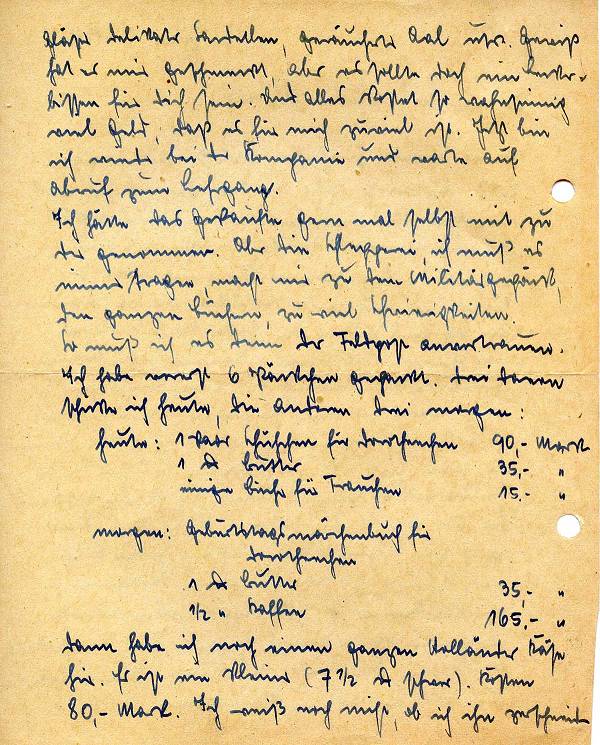 Gläser Delikateß Sardellen, geräucherte Aal usw. Gewiß
hat es mir geschmeckt, aber es sollte doch ein Lecker-
bissen für Dich sein. Und alles kostet so wahnsinnig
viel Geld, daß es für mich zuviel ist. Jetzt bin
ich wieder bei der Kompanie und warte auf
Abruf zum Lehrgang.
Ich hätte das Gekaufte gern mal selbst mit zu
Dir genommen. Aber die Schlepperei, ich muß es
immer tragen, macht mir zu dem Militärgepäck,
den ganzen Büchern, zu viel Schwierigkeiten.
So muß ich es denn der Feldpost anvertrauen.
Ich habe vorerst 6 Päckchen gepackt. Drei davon
schicke ich heute, die anderen drei morgen:
heute: 1 Paar Schühchen für Dorothenchen 90,- Mark
1 ℔ Butter 35,- "
einige Bücher für Frauchen 15.- "
morgen: Geburtstagsmärchenbuch für
Dorothenchen
1 ℔ Butter 35,- "
1/2 " Kaffee 165,- "
Dann habe ich noch einen ganzen Holländer Käse
hier. Er ist ein kleiner (7 1/2 ℔ schwer). Kosten
80,- Mark. Ich weiß noch nicht, ob ich ihn zerschneide